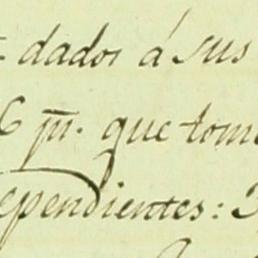 dados á sus
6 p̅s. que tom
ependientes: